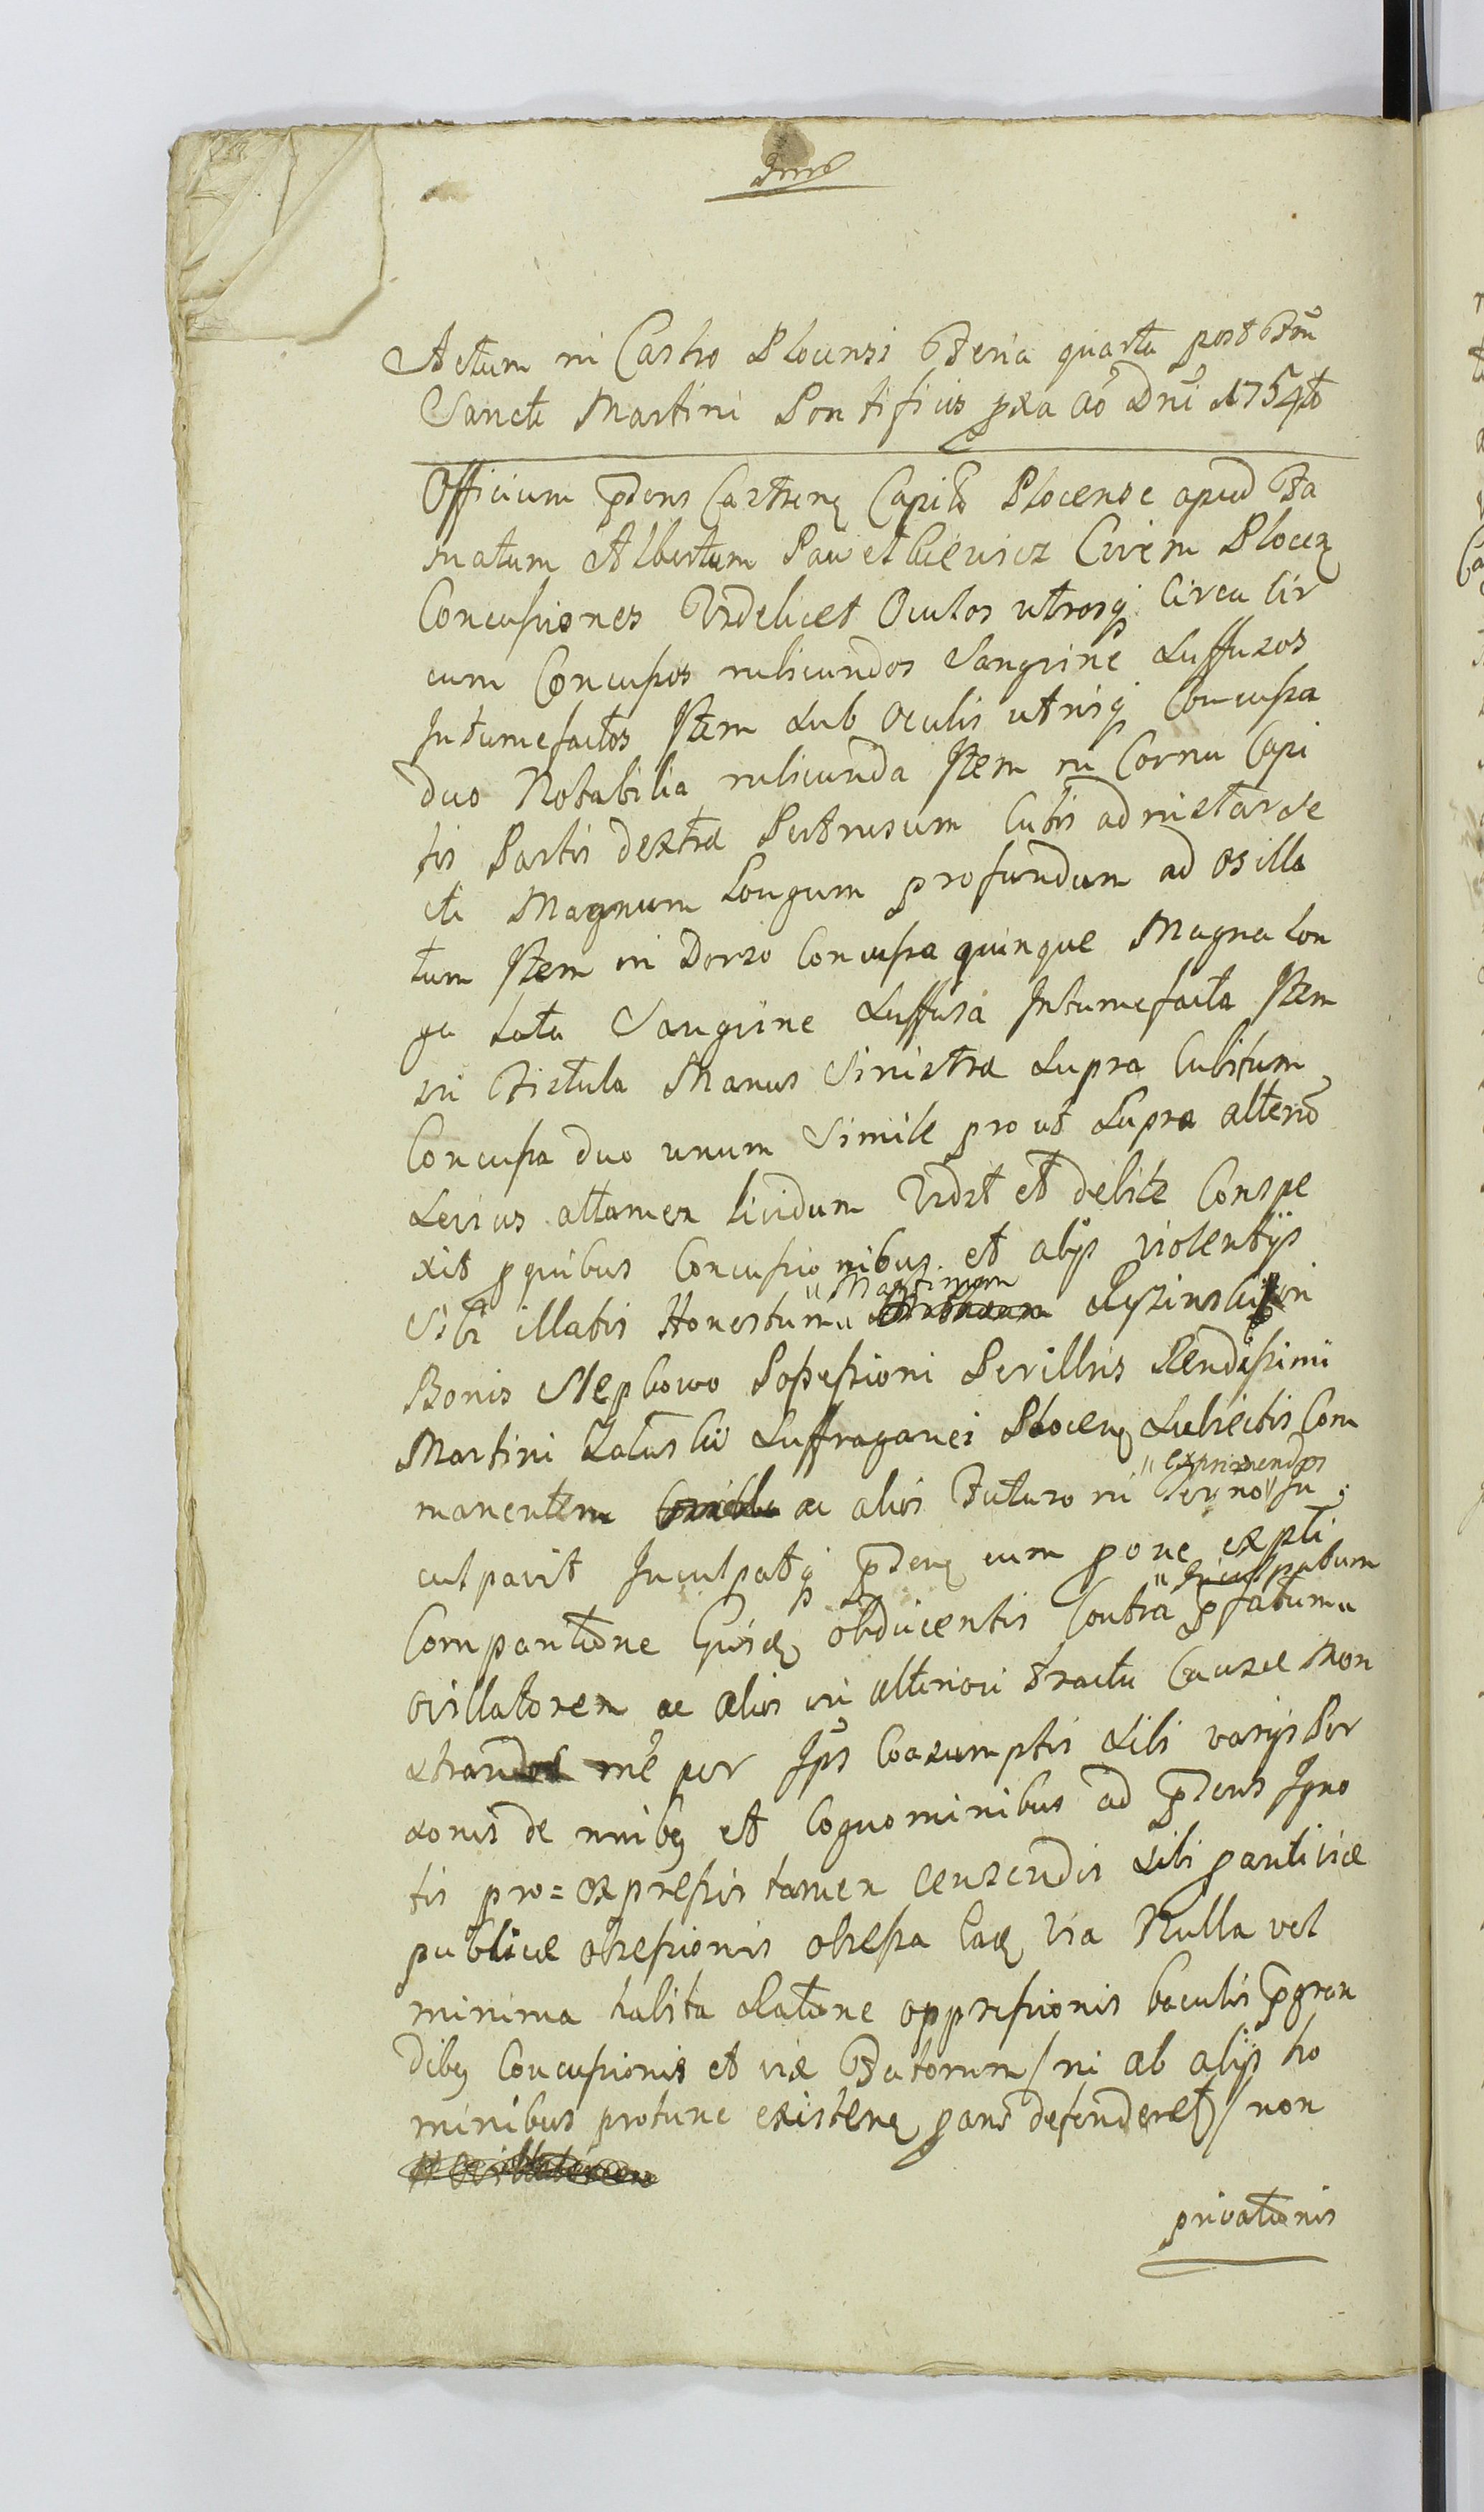 Actum in Castro Plocensi Feria quarta post Ftũ
Sancti Martini Pontificis pxa Aõ Dni 1754tõ
Officium pdens Castren Capitt Plocense apud Fa
matum Albertum Pawełkiewicz Civem Plocen
Concussiones Videlicet Oculos utrosq Circa Cir
cum Concussos rubicundos Sangvine Suffusos
Intumefactos Item Sub Oculis utrisq Concussa
duo Notabilia rubicunda Item in Cornu Capi
tis Partis dextræ Pertrusum Cutis ad instar Se
cti Magnum Longum profundum ad Os illa
tum Item in Dorso Concussa quinque Magna Lon
ga Lata Sangvine Suffusa Intumefacta Item
in Fistula Manus Sinistræ Supra Cubitum
Concussa duo unum Simile prout Supra alterũ
Levius attamen lividum Vidit et debite Conspe
xit pquibus Concussionibus et alijs violentijs
Sibi illatis Honestum "Martinum" Ryszinski in
Bonis Slepkowo Possessioni Perillris Rendissimi
Martini Załuskii Suffraganei Plocen Subiectis Com
manentem ac alios Futuro in Termo "exprimendos" In
culpavit Inculpatq pdens cum pone expti
Compantione Ejusd obducentis Contra pfatum "Inculpatum"
Oisllatorem ac alios in ulteriori tractu Causæ mon
strandos mẽ per Ips Coasumptis Sibi varijs Per
sonis de nnibq et Cognominibus ad pdens Igno
tis pro=expressis tamen censendis Sibi pantivice
publice obsessionis obsessa Eaq Via Nulla vel
minima habita Ratione oppressionis baculis pgran
dibq Concussionis et viæ Fatorum / ni ab alijs ho
minibus protunc existen pans defenderet / non
privationis